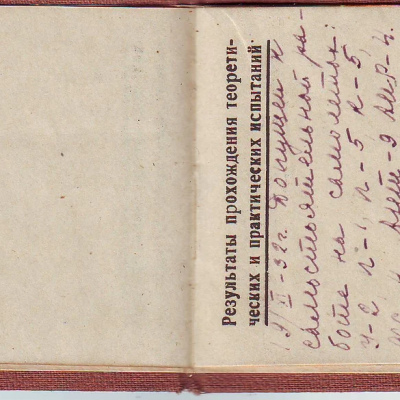 Результаты прохождения теорети-
ческих и практических испытаний.
II-32г. Допущен к
самостоятельной ра-
боте на самолетах:
У-2 П-1, П-5 Р-5,